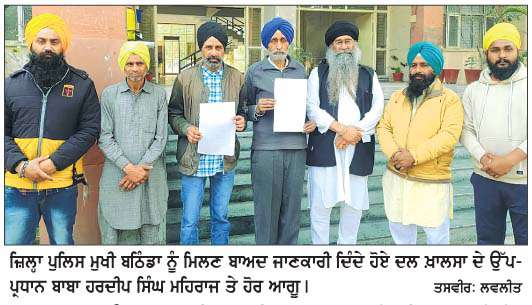 ਜ਼ਿਲ੍ਹਾ ਪੁਲਿਸ ਮੁਖੀ ਬਠਿੰਡਾ ਨੂੰ ਮਿਲਣ ਬਾਅਦ ਜਾਣਕਾਰੀ ਦਿੰਦੇ ਹੋਏ ਦਲ ਖ਼ਾਲਸਾ ਦੇ ਉੱਪ-
ਪ੍ਰਧਾਨ ਬਾਬਾ ਹਰਦੀਪ ਸਿੰਘ ਮਹਿਰਾਜ ਤੇ ਹੋਰ ਆਗੂ। ਤਸਵੀਰ: ਲਵਲੀਤ